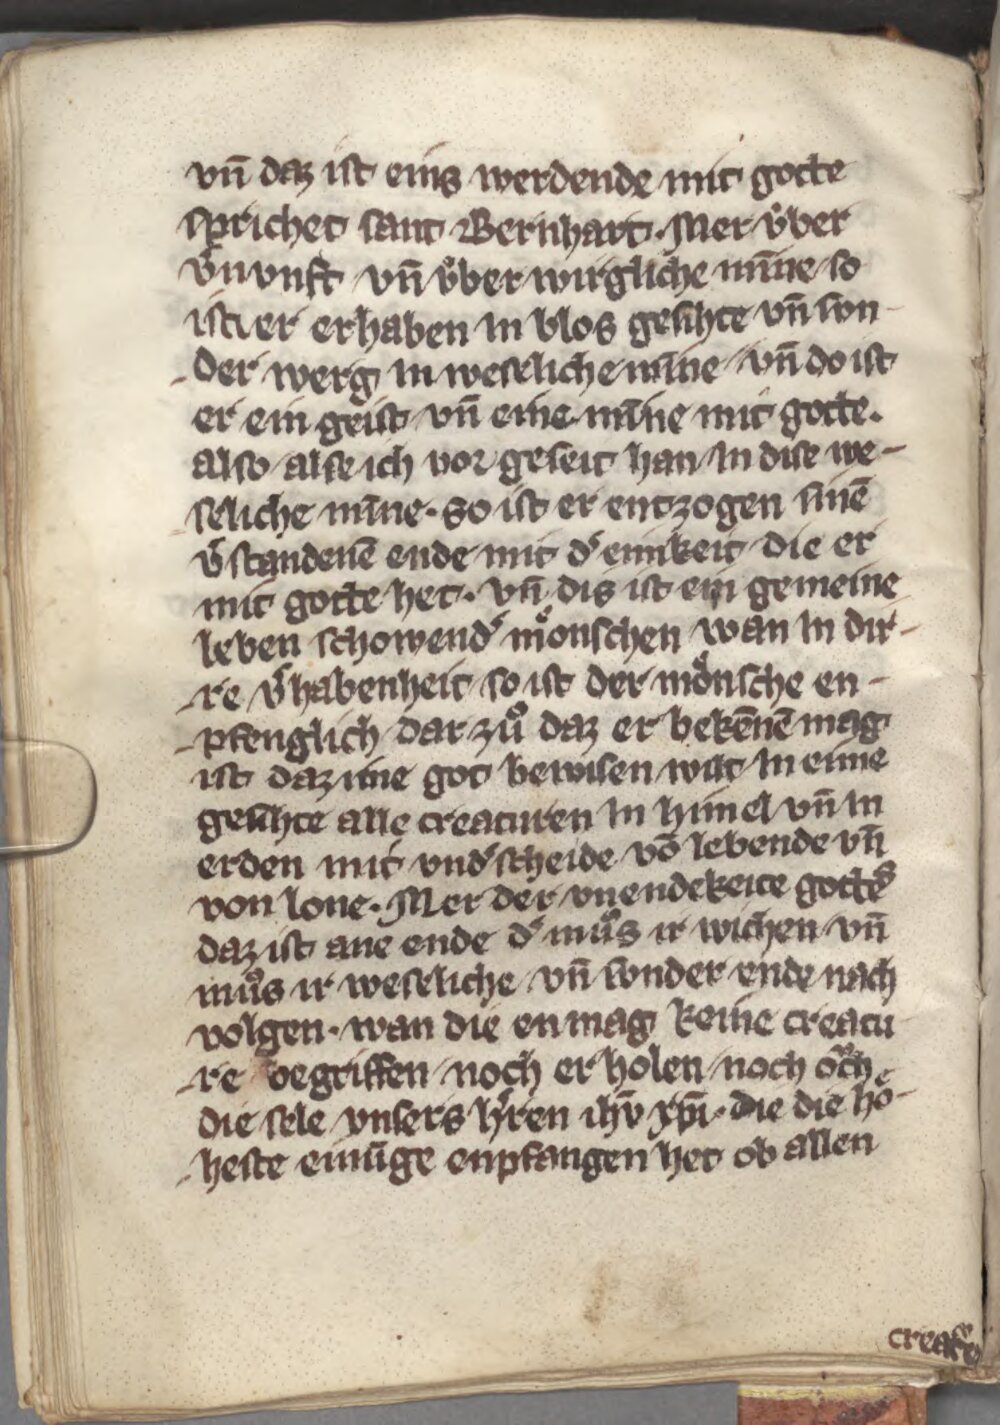 vn̄ daz ist eins werdende mit gotte
sprichet sant Bernhart. Mer v́ber
v́nvnft vn̄ v́ber wirgliche mīne so
ist er erhaben in blos gesihte vn̄ svn-
der werg in weseliche mīne vn̄ do ist
er ein geist vn̄ eine mīne mit gotte.
also alse ich vor geseit han in dise we-
seliche mīne. So ist er entzogen sinē
v᷒standenē ende mit d᷒ einikeit die er
mit gotte het. vn̄ dis ist ein gemeine
leben schowend᷒ mo̍nschen wan in dir-
re v᷒habenheit so ist der mo̍nsche en-
pfenglich dar zů daz er bekēnē mag
ist daz ime got bewisen wil in eime
gesihte alle creaturen in himel vn̄ in
erden mit vnd᷒scheide vō lebende vn̄
von lone. Mer der vnendekeite gottes
daz ist ane ende d᷒ můs ir wichen vn̄
můs ir weseliche vn̄ svnder ende nach
volgen. wan die en mag keine creatu
re begriffen noch er holen noch och
die sele vnsers h᷒ren ihv̄ xp̄i. die die ho-
heste einūge enpfangen het ob allen
creatᵛe